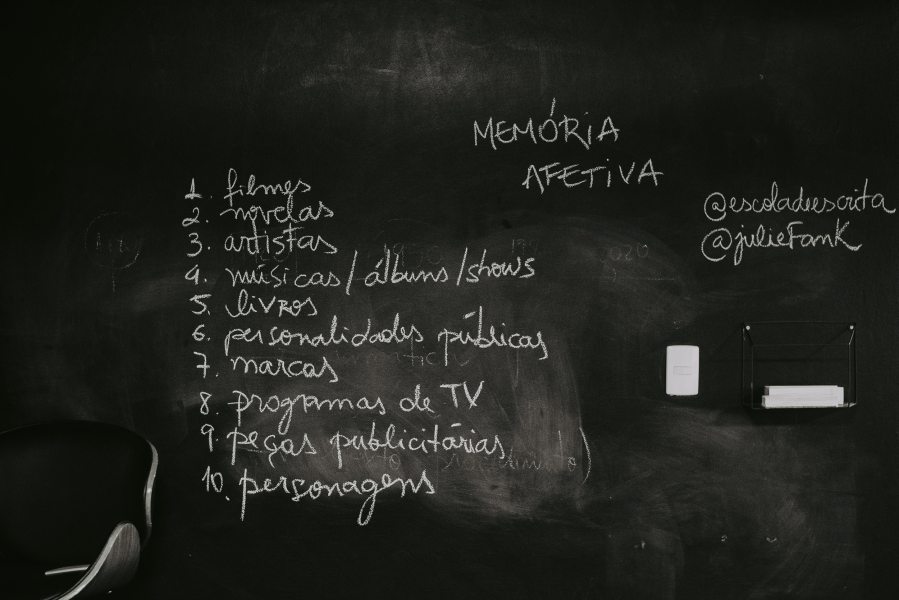 MEMÓRIA
AFETIVA
@escoladeescrita
@julieFank
1. filmes
2. novelas
3. artistas
4. músicas/álbuns/shows
5. livros
6. personalidades públicas
7. marcas
8. programas de TV
9. peças publicitárias
10. personagens